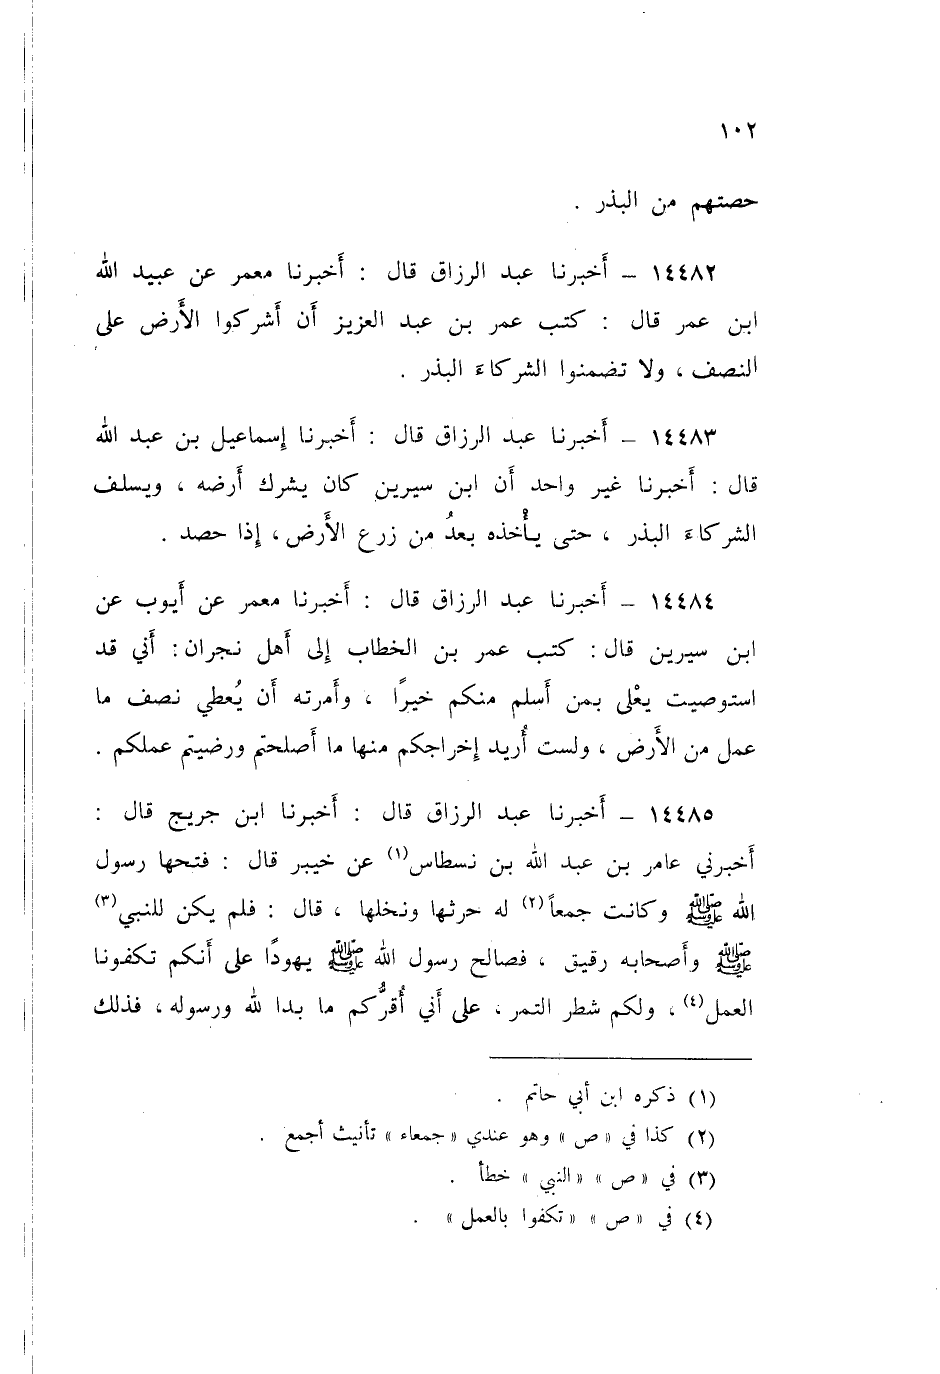 ١٠٢
حصتهم من البذر .
١٤٤٨٢ – أخبرنا عبد الرزاق قال : أخبرنا معمر عن عبيد الله
ابن عمر قال : كتب عمر بن عبد العزيز أن أشركوا الأرض على
النصف ، ولا تضمنوا الشركاءَ البذر .
١٤٤٨٣ – أخبرنا عبد الرزاق قال : أخبرنا إسماعيل بن عبد الله
قال : أخبرنا غير واحد أن ابن سيرين كان يشرك أرضه ، ويسلف
الشركاءَ البذر ، حتى يأْخذه بعدُ من زرع الأَرض ، إذا حصد .
١٤٤٨٤ – أخبرنا عبد الرزاق قال : أخبرنا معمر عن أيوب عن
ابن سيرين قال : كتب عمر بن الخطاب إلى أهل نجران : أني قد
استوصيت يعْلى بمن أسلم منكم خيرًا ، وأمرته أن يُعطي نصف ما
عمل من الأَرض ، ولست أُريد إخراجكم منها ما أصلحتم ورضيتم عملكم .
١٤٤٨٥ – أخبرنا عبد الرزاق قال : أخبرنا ابن جريج قال :
أخبرني عامر بن عبد الله بن نسطاس(١) عن خيبر قال : فتحها رسول
الله ﷺ وكانت جمعاً(٢) له حرثها ونخلها ، قال : فلم يكن للنبي(٣)
ﷺ وأصحابه رقيق ، فصالح رسول الله ﷺ يهودًا على أنكم تكفونا
العمل(٤) ، ولكم شطر التمر ، على أني أُقرُّكم ما بدا لله ورسوله ، فذلك
(١) ذكره ابن أبي حاتم .
(٢) كذا في « ص » وهو عندي « جمعاء » تأنيث أجمع .
(٣) في « ص » « النبي » خطأ .
(٤) في « ص » « تكفوا بالعمل » .